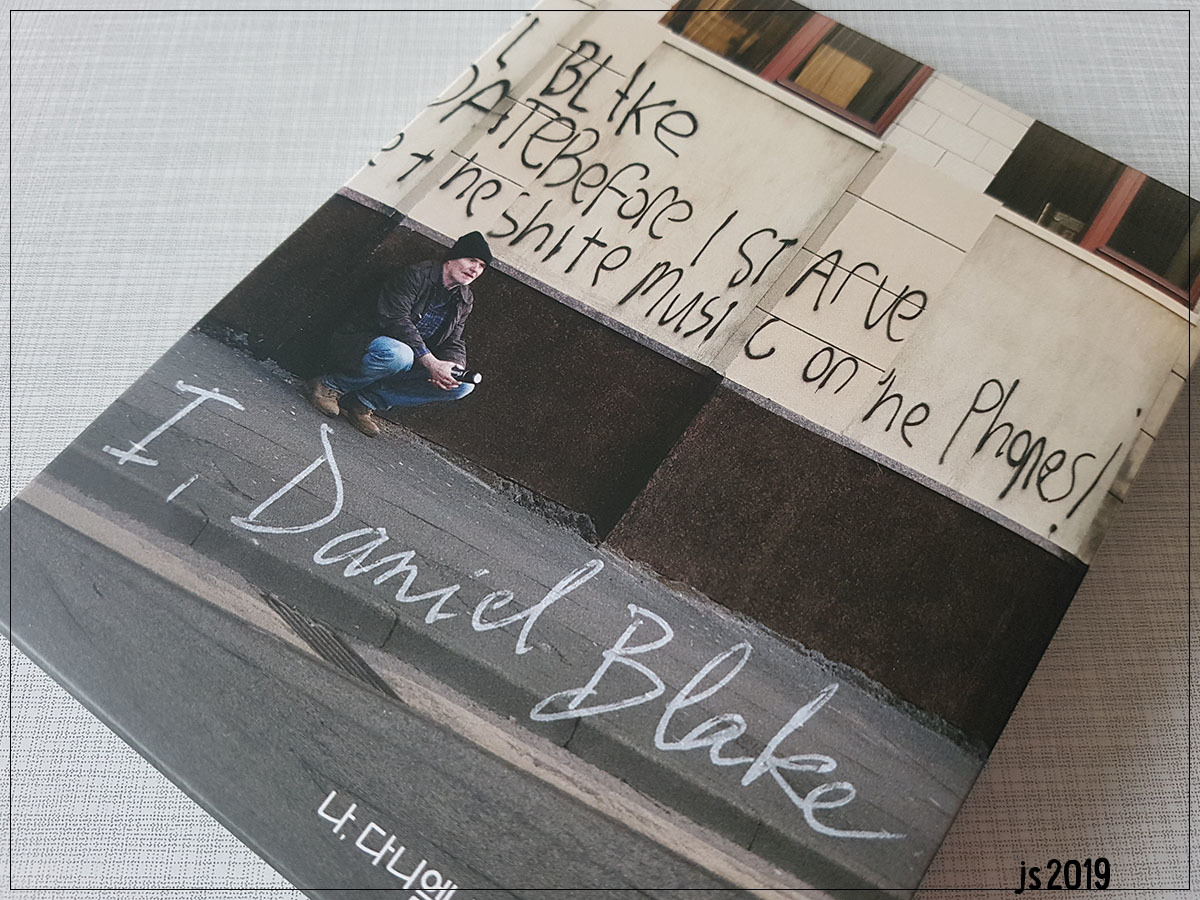 I BLAKE
DATE BEFORE I STARVE
the shite music on the Phones!
I, Daniel Blake
나, 다니엘
js 2019